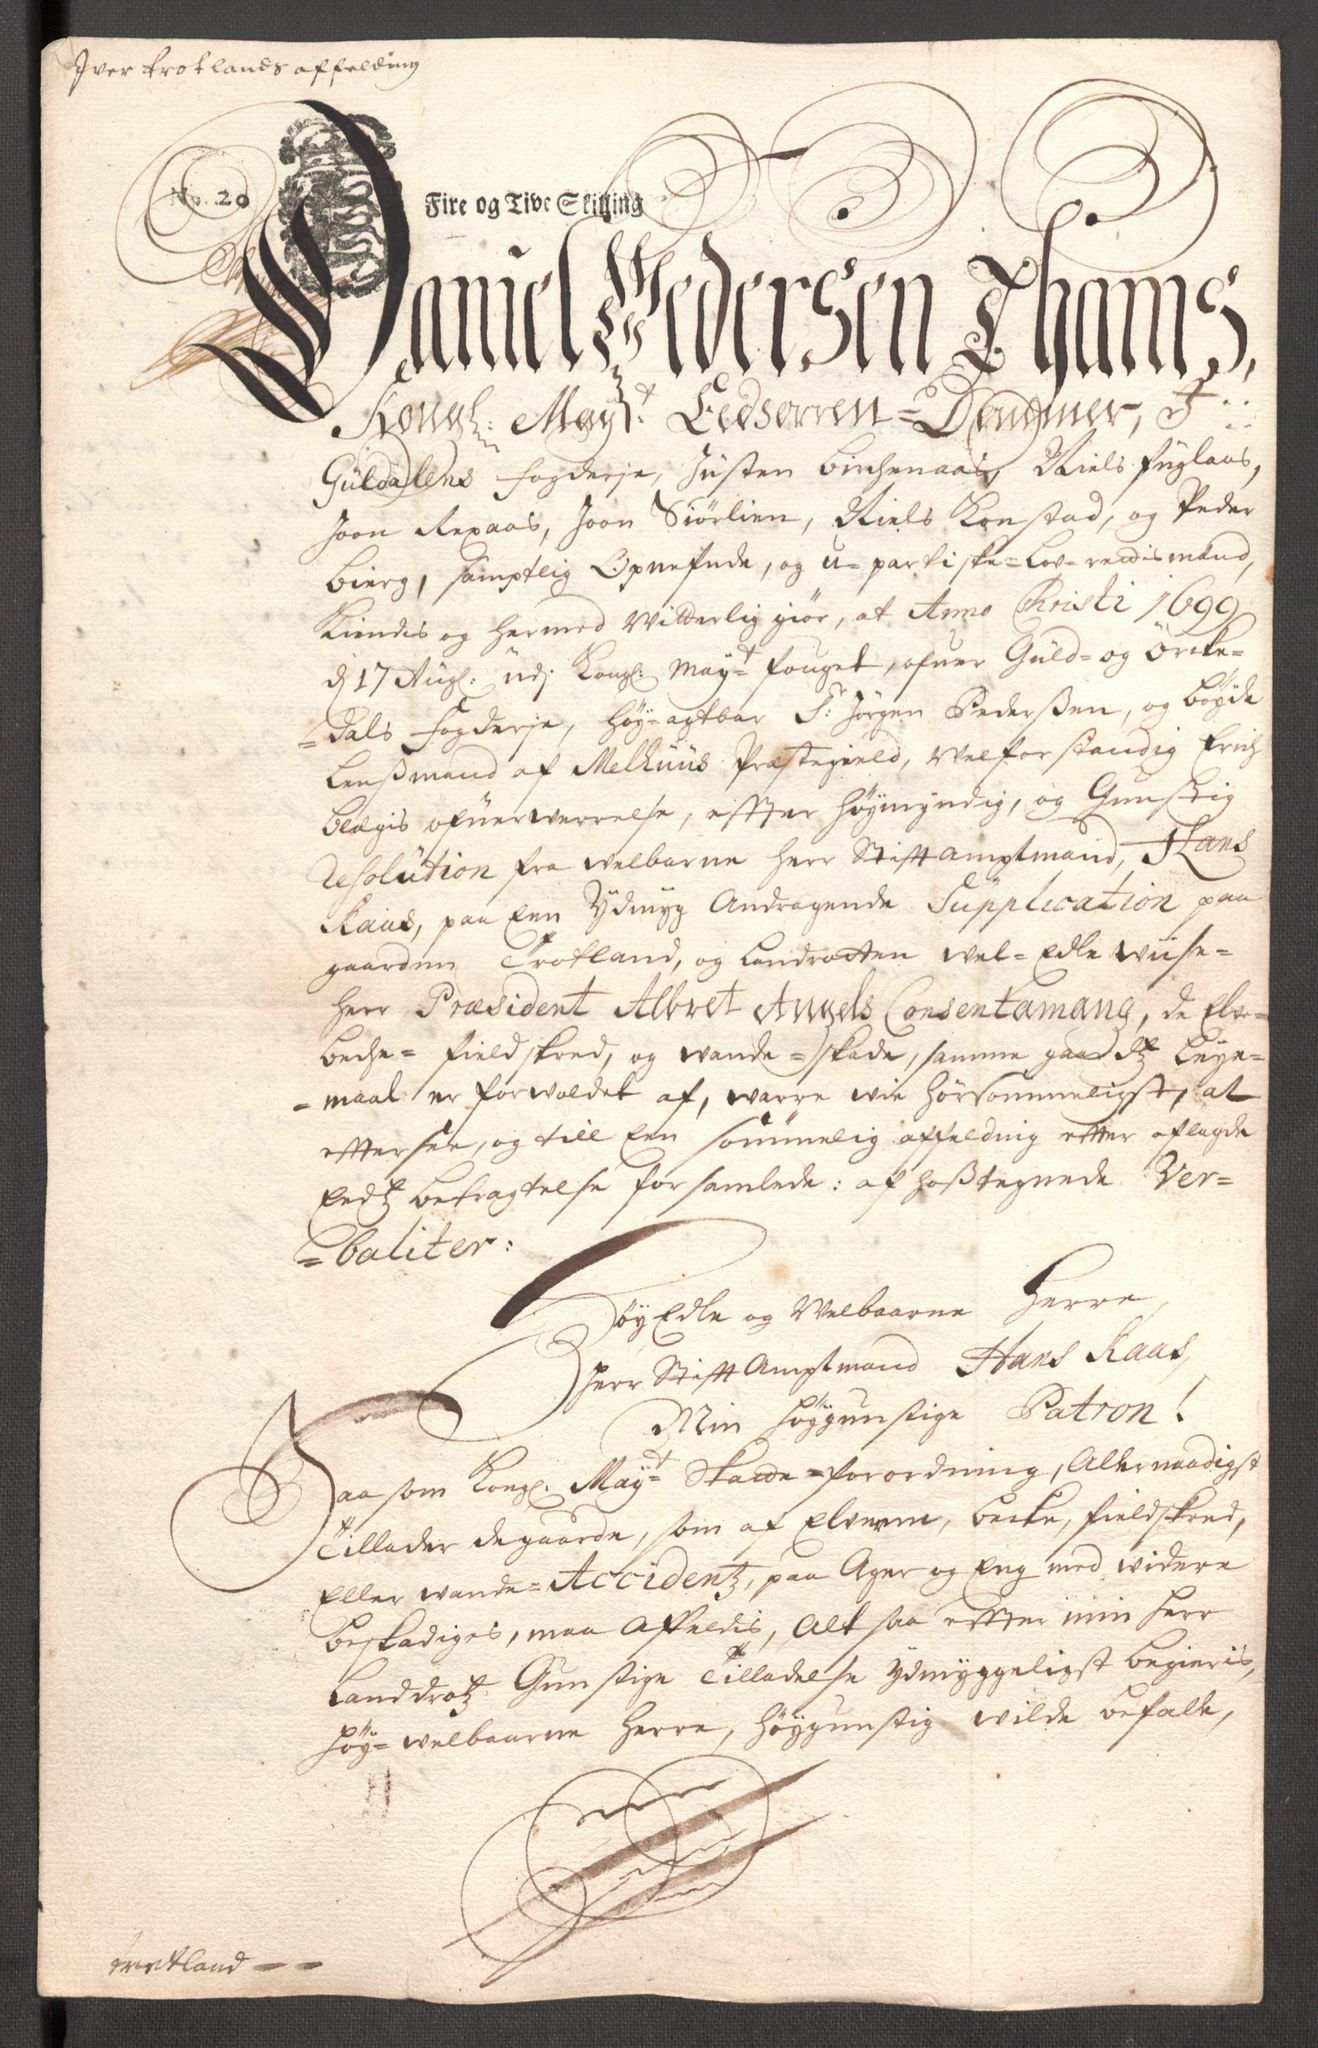 Iver trotlands affelding
No. 20
Fire og Tive Skilling
Daniel Pedersen Thams,
Kongl: Mayt Eedsorren-Dommer, I
Guldalens fogderje, Justen Birchenaas, Niels fuglaas,
Joon Rexaas, Joon Siørlien, Niels Konstad, og Peder
bierg, samptlig Opnefnde, og u-partiske-Lov-rettismænd,
Kiendis og hermed Witterlig giør, at Anno Christi 1699
dj 17 Augl: udj Kongl: Mayt fouget, ofuer Guld- og örcke-
-dals fogderje, høy-agtbar Sr: Jørgen Pederßen, og bøyde
Lenßmand af Melhuus Præstegield, Welforstandig Erich
blegis ofuerwerrelse, effter høymyndig, og Gunstig
resolution fra welbarne herr Stifftamptmand, Hans
Kaas, paa Een Ydmyg Andragende Supplication paa
gaarden Trotland, og Landrotten wel-Edle wiise-
herr Præsident Albret Angels Consentamang, de Elve-
beche-fieldskred, og wande-skade, samme gaardtz Leye-
-maal er forvoldet af, warre wie hörsommeligst, at
effterseе, og till Een sömmelig affelding effter aflagde
Eedtz betragtelse forsamlede: af hoßtegnede Ver-
-baliter:
Höy Edle og Welbaarne Herre,
Herr StifftAmptmand Hans Kaas,
Min Höygunstige Patron!
Saasom Kongl: Mayt Skatte-forordning, Allernaadigst
Tillader de gaarde, som af Elvenn, becke, fieldskred,
Eller wande-Accidentz, paa Ager og Eng med widere
beskadiges, maa Affeldis, Alt saa effter min herr
Landdrotz Gunstige Tilladelse Ydmyggeligst begieris,
höy-welbaarne Herre, höygunstig wilde befale,
trotland - -